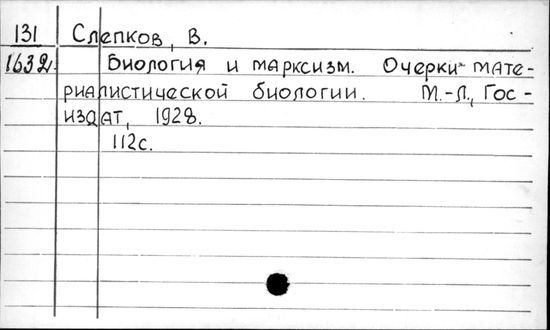 131 Слепков, В.
1632 Биология и марксизм. Очерки мате-
риалистической биологии. М.-Л., Гос-
издат, 1928.
112с.